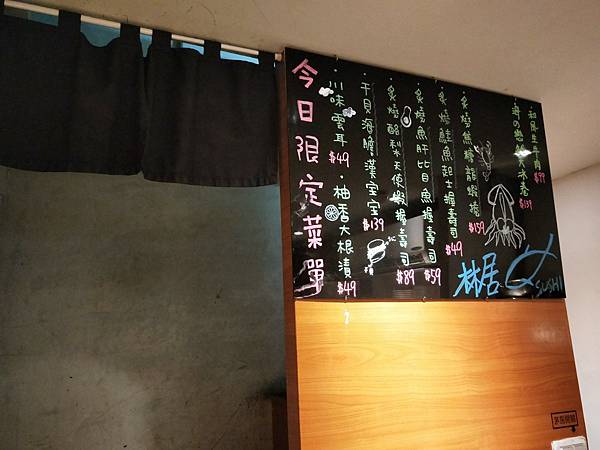 今日限定菜單
·川味雲耳 $49
·柚香大根漬 $49
·干貝海膽·葉宝宝 $139
·炙燒酪梨天使蝦握壽司 $89
·炙燒魚肝比目魚握壽司 $59
·炙燒鮭魚起士握壽司 $49
·炙燒焦糖龍蝦捲 $159
$139
$99
林居
SUSHI